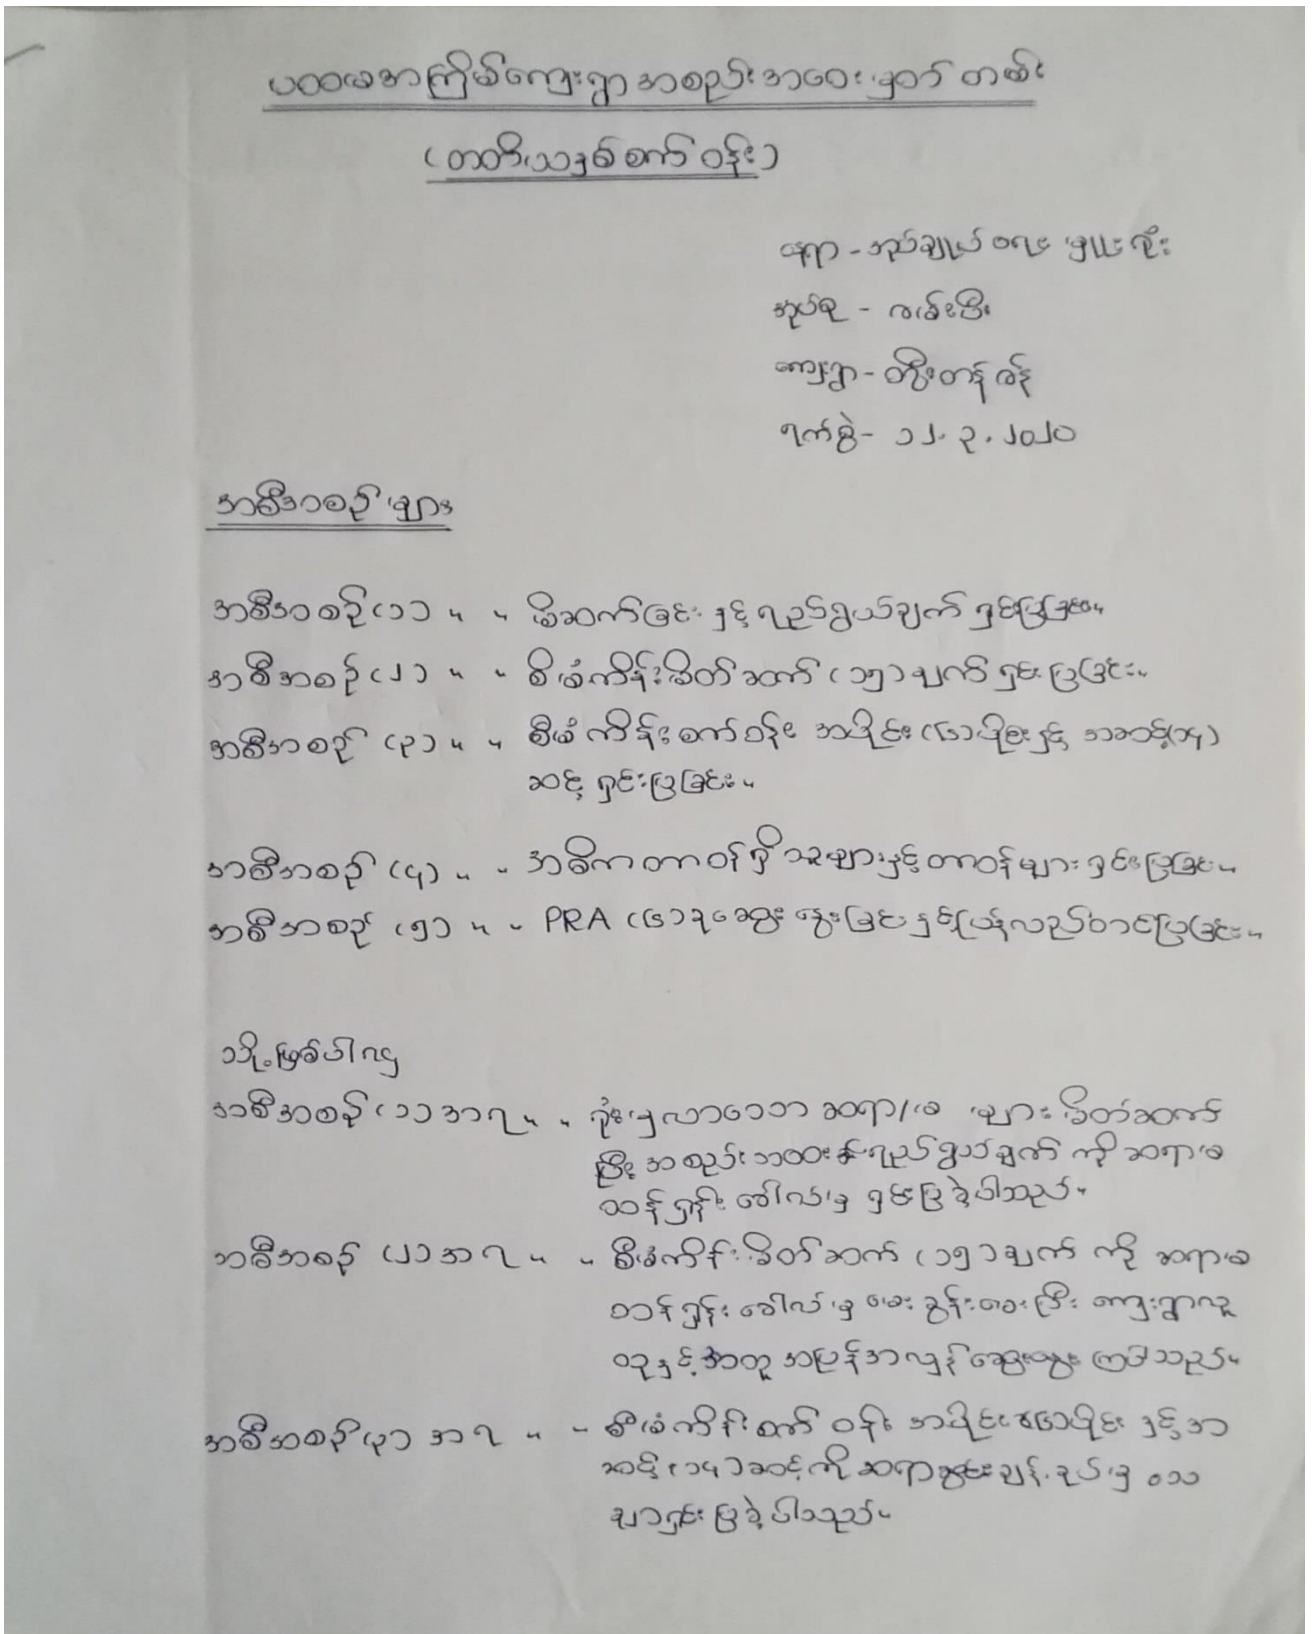 ပထမအကြိမ်ကျေးရွာအစည်းအဝေးမှတ်တမ်း
(တတိယနှစ်စက်ဝန်း)
နေရာ - အုပ်ချုပ်ရေးမှူးရုံး
အုပ်စု -
ကျေးရွာ - တွီးတန်ဇန်
ရက်စွဲ - ၁၂.၃.၂၀၂၀
အစီအစဉ်များ
အစီအစဉ် (၁) ။ ။ မိတ်ဆက်ခြင်းနှင့်ရည်ရွယ်ချက် ရှင်းပြခြင်း။
အစီအစဉ် (၂) ။ ။ စီမံကိန်းမိတ်ဆက် (၁၅) ချက် ရှင်းပြခြင်း။
အစီအစဉ် (၃) ။ ။ စီမံကိန်းစက်ဝန်း အပိုင်း (၆) ပိုင်းနှင့် အဆင့် (၁၄)
ဆင့် ရှင်းပြခြင်း။
အစီအစဉ် (၄) ။ ။ အဓိကတာဝန်ရှိသူများနှင့်တာဝန်များ ရှင်းပြခြင်း။
အစီအစဉ် (၅) ။ ။ PRA (၆) ခုဆွေးနွေးခြင်းနှင့်ပြန်လည်တင်ပြခြင်း။
သို့ဖြစ်ပါ၍
အစီအစဉ် (၁) အရ ။ ။ ရုံးမှလာသော ဆရာ/မ များမိတ်ဆက်
ပြီး အစည်းအဝေးရည်ရွယ်ချက် ကို ဆရာမ
ထန်ရှန်း ခေါလ်မှ ရှင်းပြခဲ့ပါသည်။
အစီအစဉ် (၂) အရ ။ ။ စီမံကိန်းမိတ်ဆက် (၁၅) ချက် ကို ဆရာမ
ထန်ရှန်း ခေါလ်မှ မေးခွန်းမေးပြီး ကျေးရွာလူ
ထုနှင့်အတူ အပြန်အလှန် ဆွေးနွေး ကြပါသည်။
အစီအစဉ် (၃) အရ ။ ။ စီမံကိန်းစက်ဝန်း အပိုင်း (၆) ပိုင်း နှင့်အ
ဆင့် (၁၄) ဆင့်ကို ဆရာ မှ သေ
ချာရှင်းပြခဲ့ပါသည်။